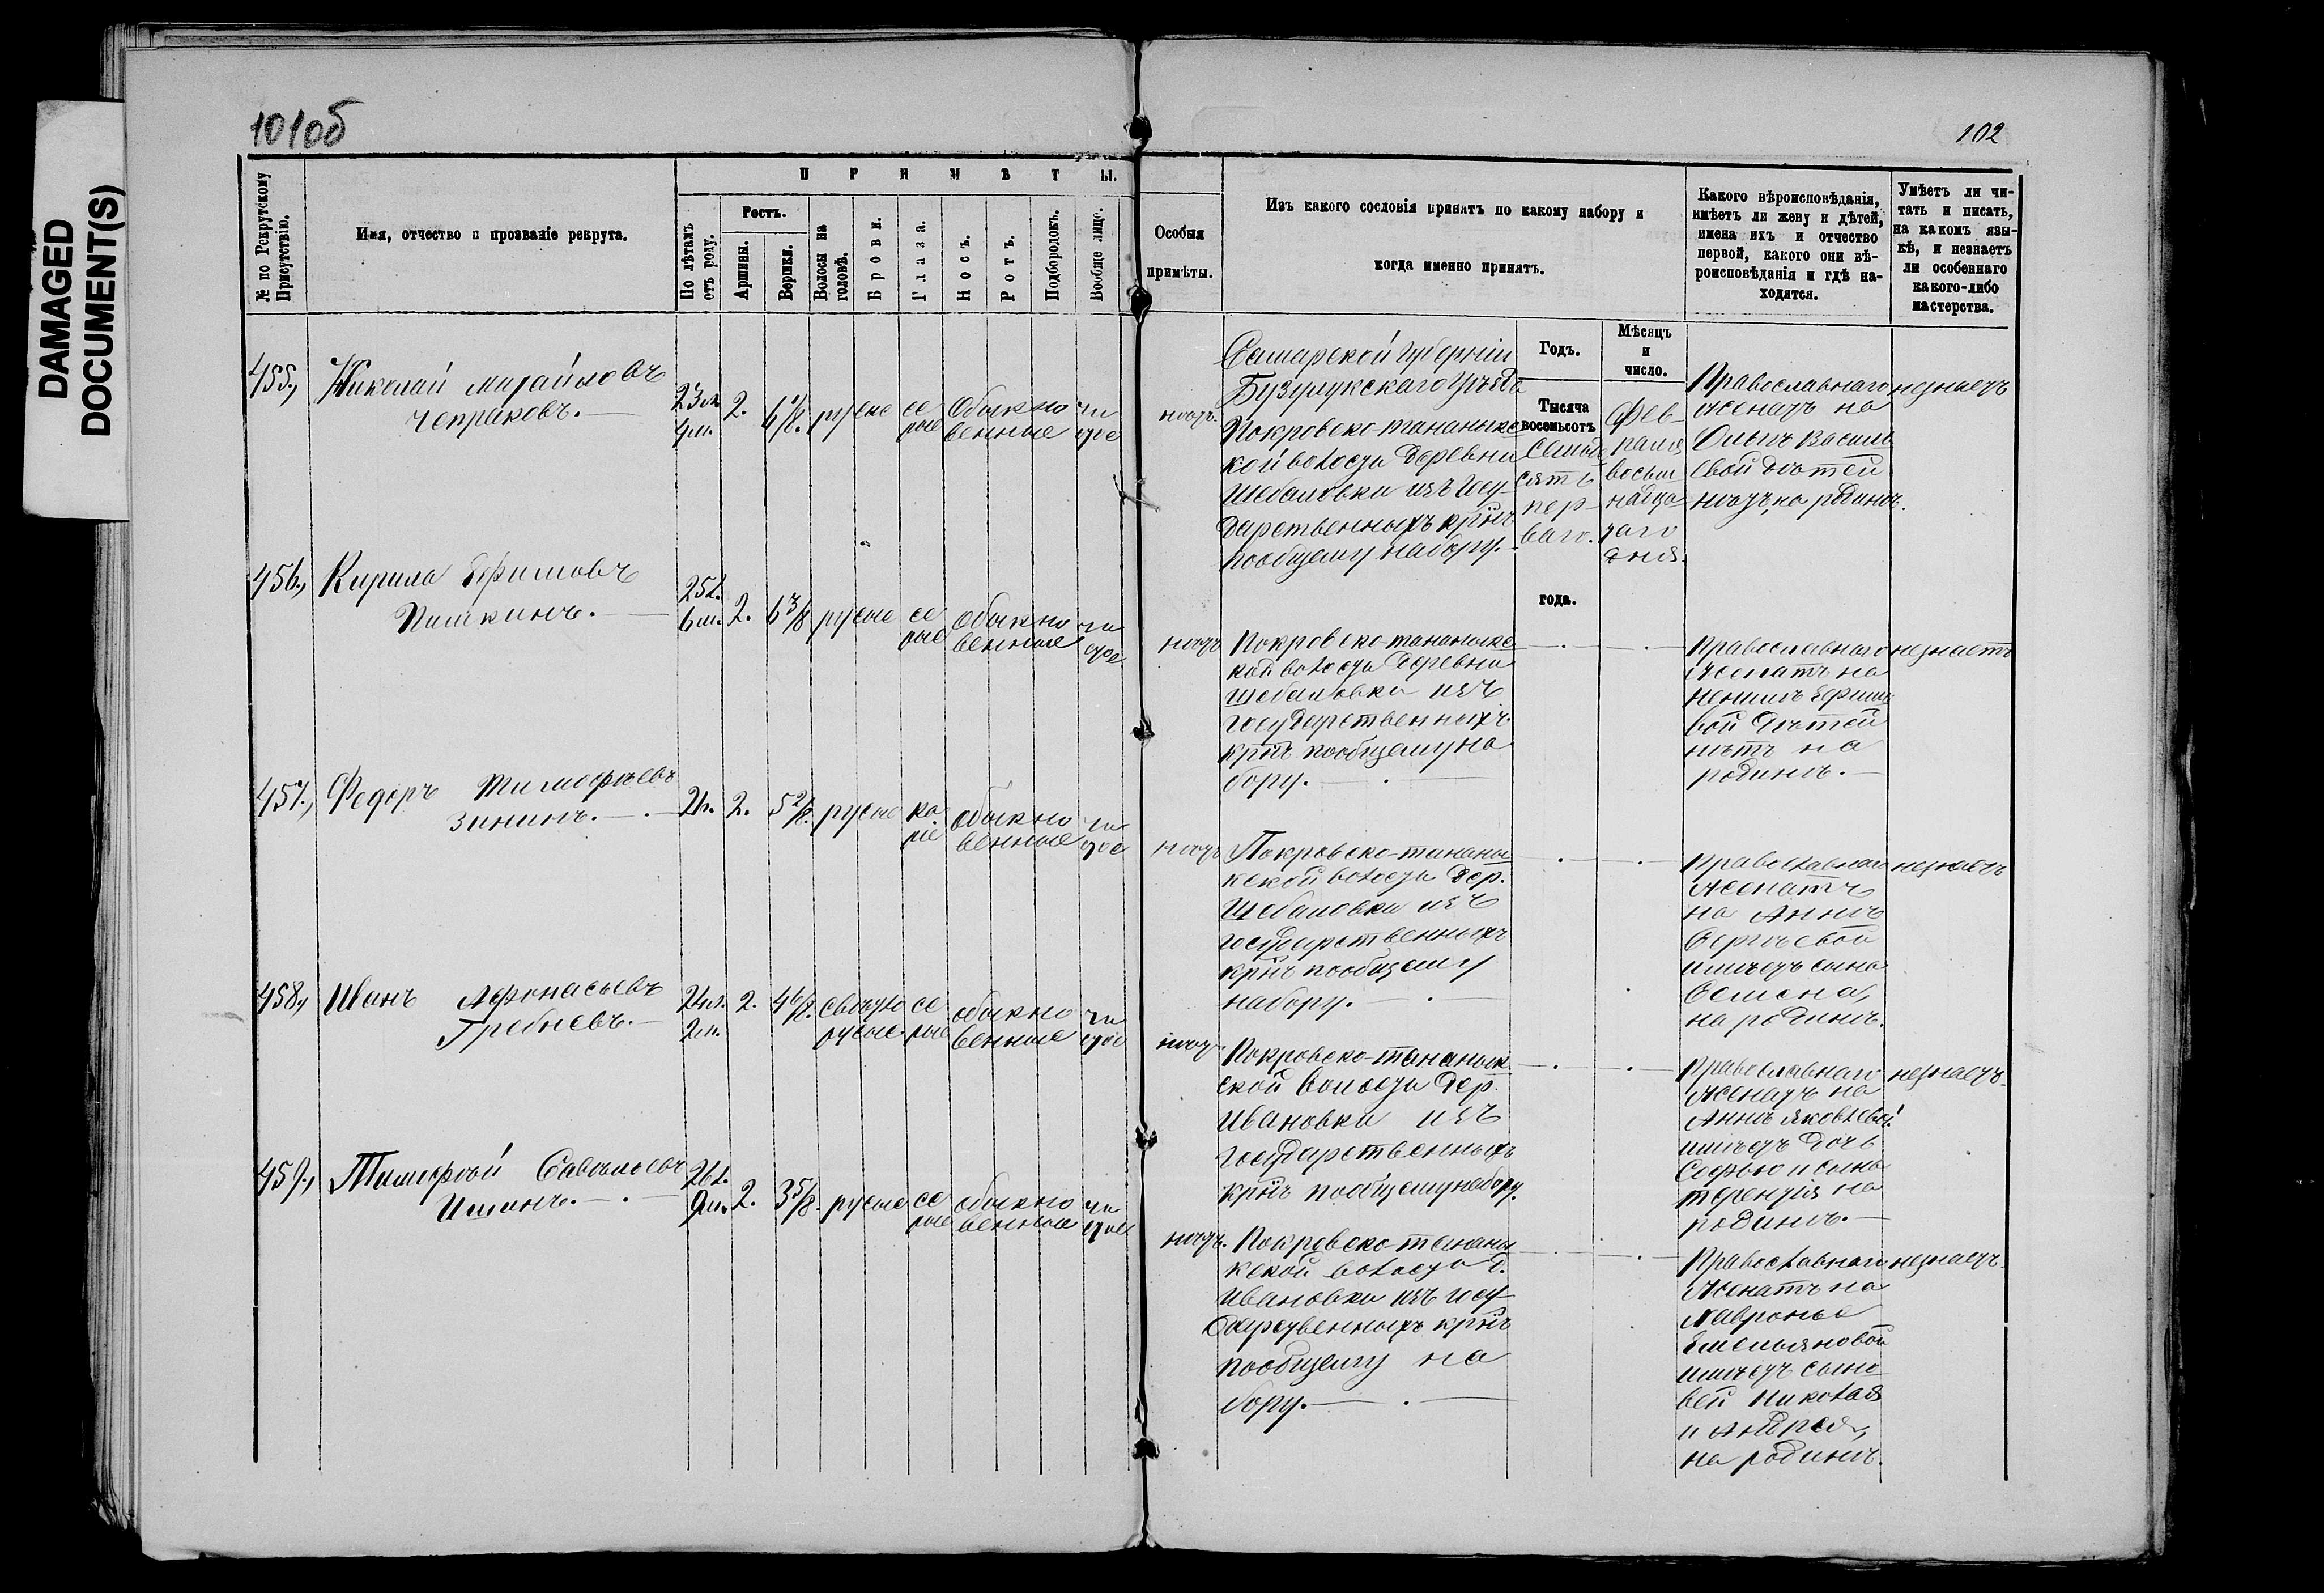 DAMAGED
DOCUMENT(S)
101об
102
№ по Рекрутскому
Присутствію.
Имя, отчество и прозваніе рекрута.
ПРИМѢТЫ.
По лѣтамъ
отъ роду.
Ростъ.
Аршины.
Вершки.
Волосы на
головѣ.
Брови.
Глаза.
Носъ.
Ротъ.
Подбородокъ.
Вообще лицо.
Особыя
примѣты.
Изъ какого сословія принятъ по какому набору и
когда именно принятъ.
Какого вѣроисповѣданія,
имѣетъ ли жену и дѣтей,
имена ихъ и отчество
первой, какого они вѣ-
роисповѣданія и гдѣ на-
ходятся.
Умѣетъ ли чи-
тать и писать,
на какомъ язы-
кѣ, и незнаетъ
ли особеннаго
какого-либо
мастерства.
Годъ.
Мѣсяцъ
и
число.
455.,
Николай михайловъ
чепраковъ.
23 л.
4 м.
2.
6 1/8.
русые
се
рые
Обыкно
венные
чи
стое
нѣтъ.
Самарской губерніи
Бузулукскаго Уѣзда
Покровско-тананыкс
кой волости деревни
Шебаловки изъ Госу-
дарственныхъ крнъ
пообщему набору.
Тысяча
восемьсотъ
Семьде
сятъ
пер-
ваго.
года.
Фев-
раля
восем
надца
таго
дня.
Православнаго
женатъ на
Ольгѣ Василь
евой дѣтей
нѣтъ, на родинѣ.
незнаетъ
456.,
Кирила Ефимовъ
Пишкинъ.
25 л.
6 м.
2.
6 3/8
русые
се
рые
Обыкно
венные
чи
стое
нѣтъ
Покровско-тананыкс
кой волости деревни
Шебаловки изъ
государственныхъ
крнъ пообщему на
бору.
Православнаго
женатъ на
Ефимо
вой дѣтей
нѣтъ на
родинѣ.
незнаетъ
457.,
Федоръ Тимофѣевъ
Зининъ.
2.
5 2/8.
русые
ка
ріе
обыкно
венные
чи
стое
нѣтъ
Покровско-тананы
кской волости дер.
Шебаловки изъ
государственныхъ
крнъ пообщему
набору.
Православнаго
женатъ
на Аннѣ
Сергѣевой
имѣетъ сына
Семена,
на родинѣ.
незнаетъ
458.,
Иванъ Афонасьевъ
Гребневъ.
24 л.
2 м.
2.
4 6/8.
свѣтло
русые
се
рые
обыкно
венные
чи
стое
нѣтъ.
Покровско-тананык
ской волости дер.
Ивановки изъ
государственныхъ
крнъ пообщему набору.
Православнаго
женатъ на
Аннѣ Яковлевой
имѣетъ дочь
Софью и сына
терентія на
родинѣ.
незнаетъ.
459.,
Тимофѣй Савельевъ
Ишинъ.
26 л.
9 м.
2.
3 5/8.
русые
се
рые
обыкно
венные
чи
стое
нѣтъ.
Покровско-тананы
кской волости д.
Ивановки изъ госу
дарственныхъ крнъ
пообщему на
бору.
Православнаго
женатъ на
Мавронье
Емельяновой
имѣетъ сыно
вей Николая
и Андрея,
на родинѣ.
незнаетъ.